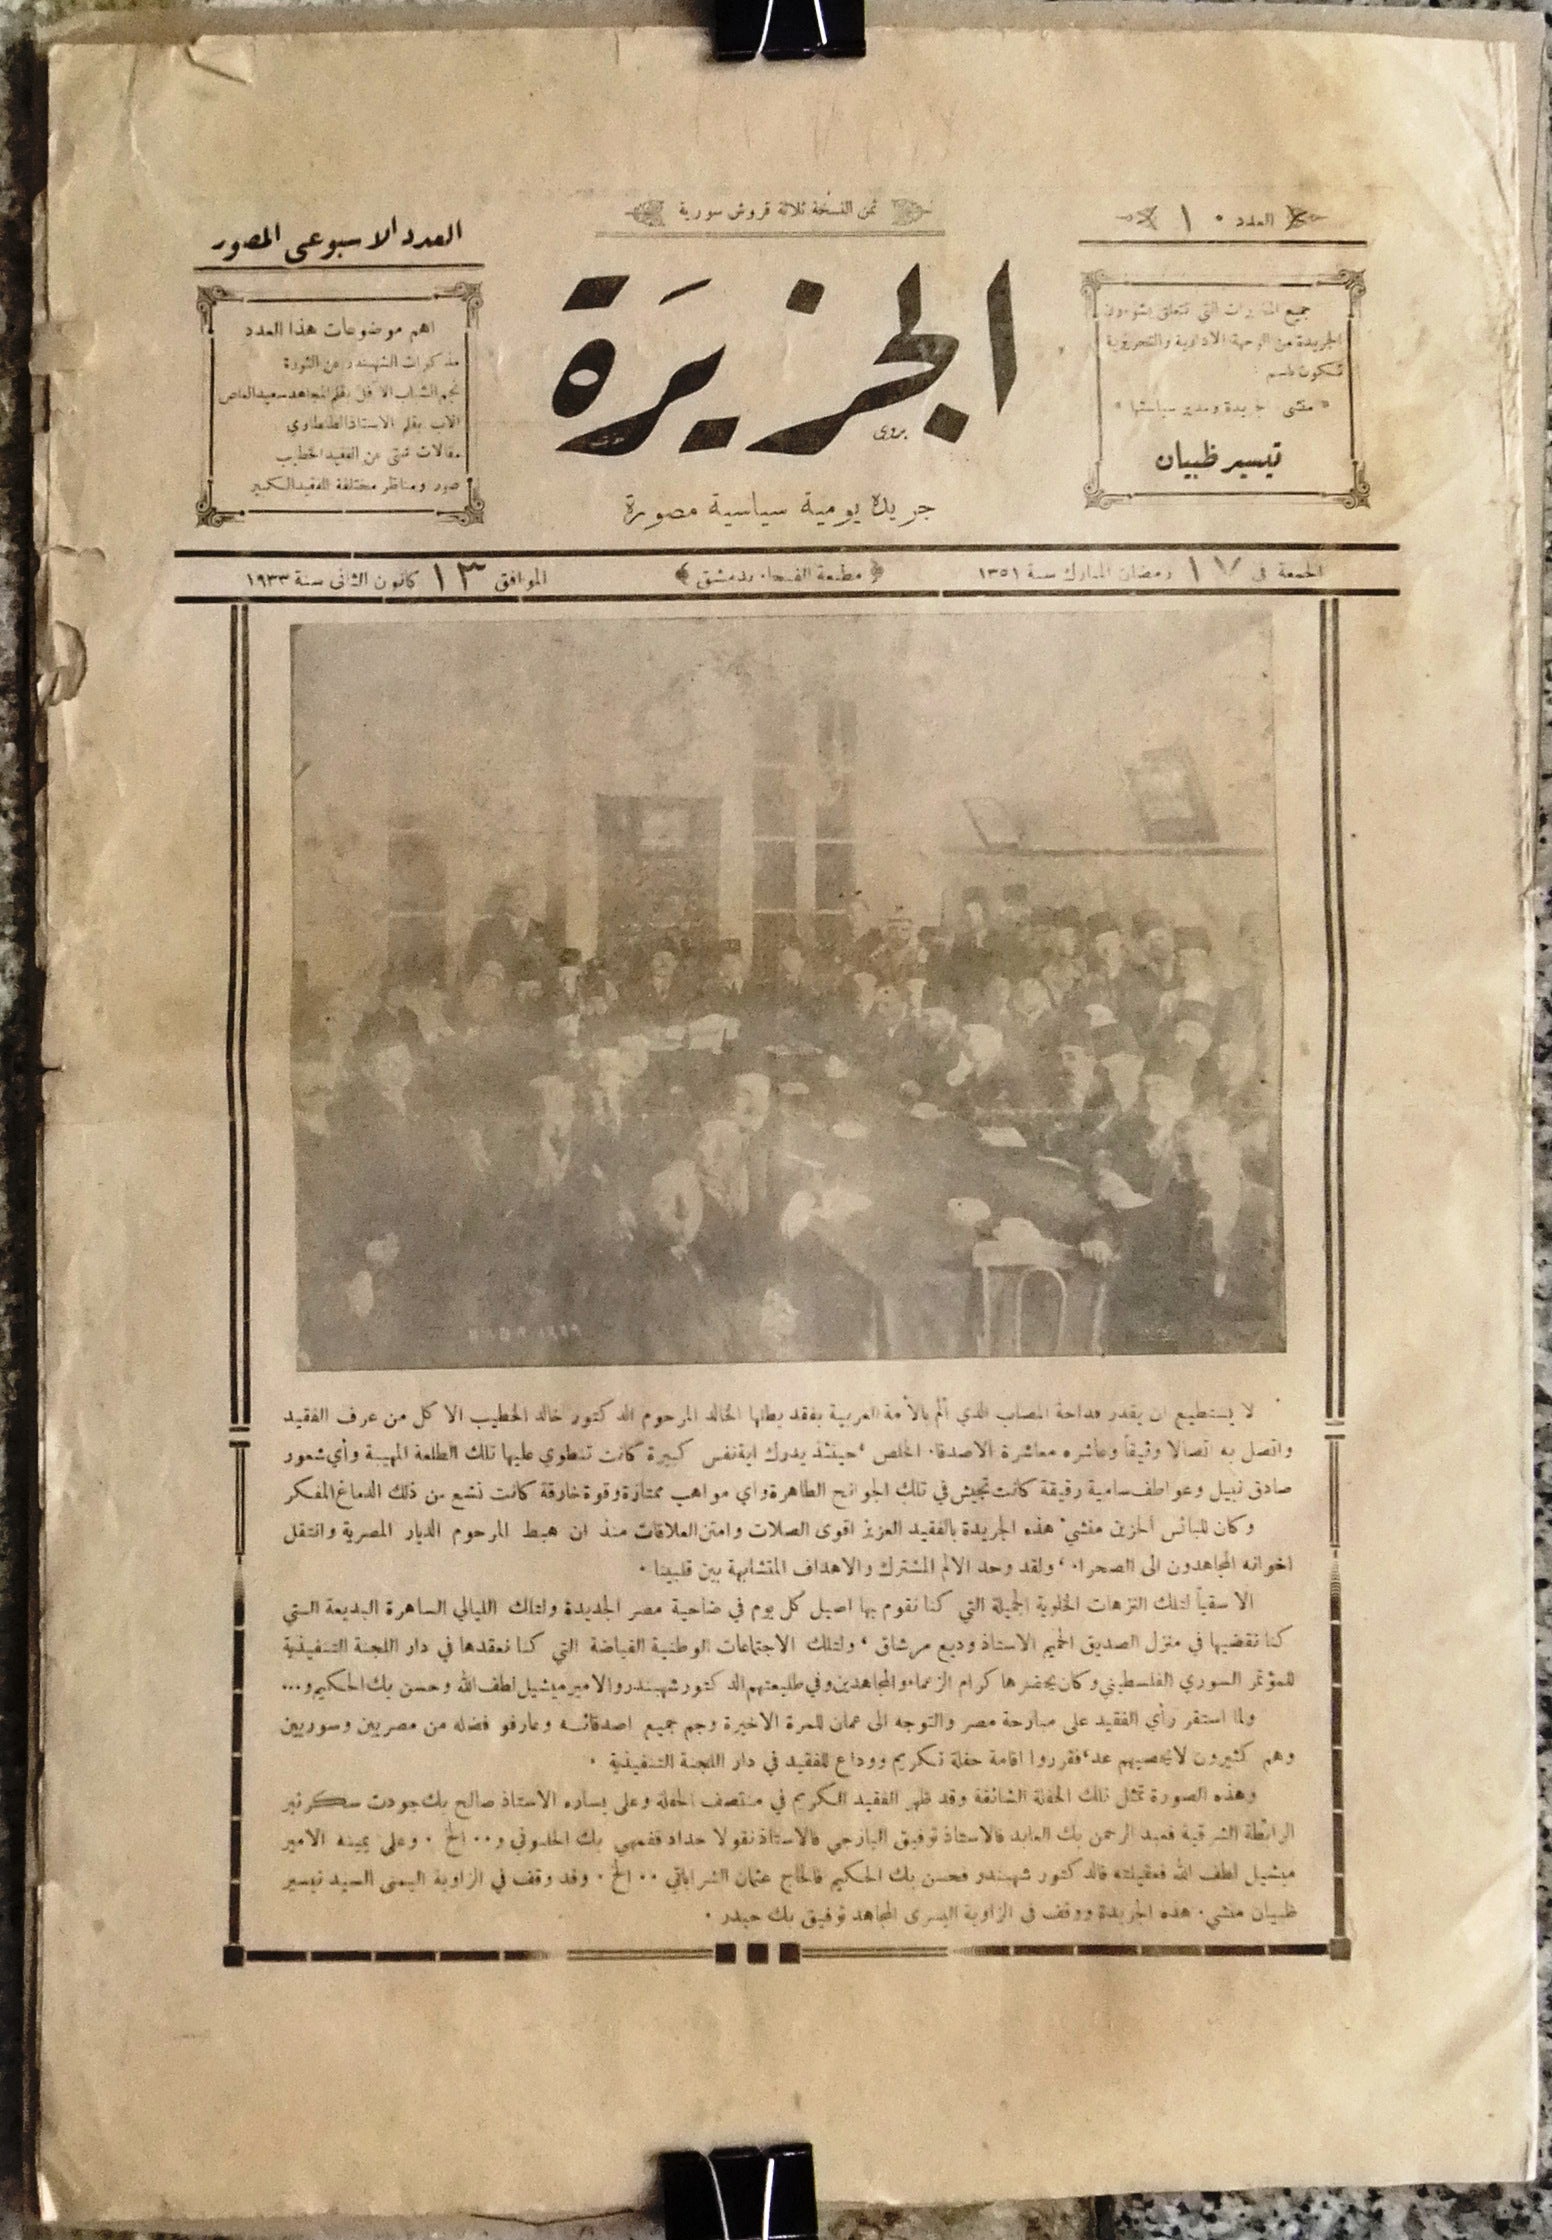 العدد ١٠
ثمن النسخة ثلاثة قروش سورية
العدد الاسبوعي المصور
جميع المخابرات التي تتعلق بشؤون
الجريدة من الوجهة الادارية والتحريرية
تكون باسم
« منشئ الجريدة ومدير سياستها »
تيسير ظبيان
الجزيرة
بدوي
جريدة يومية سياسية مصورة
اهم موضوعات هذا العدد
مذكرات الشهبندر عن الثورة
نجم الشباب الآفل بقلم المجاهد سعيد العاص
الاب بقلم الاستاذ الطنطاوي
مقالات شتى عن الفقيد الخطيب
صور ومناظر مختلفة للفقيد الكبير
الجمعة في ١٧ رمضان المبارك سنة ١٣٥١
مطبعة الفيحاء بدمشق
الموافق ١٣ كانون الثاني سنة ١٩٣٣
لا يستطيع ان يقدر فداحة المصاب الذي ألم بالأمة العربية بفقد بطلها الخالد المرحوم الدكتور خالد الخطيب الا كل من عرف الفقيد
واتصل به اتصالا وثيقاً وعاشره معاشرة الاصدقاء الخلص ، حينئذ يدرك اية نفس كبيرة كانت تنطوي عليها تلك الطلعة المهيبة وأي شعور
صادق نبيل وعواطف سامية رقيقة كانت تجيش في تلك الجوانح الطاهرة واي مواهب ممتازة وقوة خارقة كانت تشع من ذلك الدماغ المفكر
وكان للبائس الحزين منشيء هذه الجريدة بالفقيد العزيز اقوى الصلات وامتن العلاقات منذ ان هبط المرحوم الديار المصرية وانتقل
اخوانه المجاهدون الى الصحراء ، ولقد وحد الالم المشترك والاهداف المتشابهة بين قلبينا .
الا سقياً لتلك النزهات الخلوية الجميلة التي كنا نقوم بها اصيل كل يوم في ضاحية مصر الجديدة ولتلك الليالي الساهرة البديعة التي
كنا نقضيها في منزل الصديق الحميم الاستاذ وديع مرشاق ، ولتلك الاجتماعات الوطنية الفياضة التي كنا نعقدها في دار اللجنة التنفيذية
للمؤتمر السوري الفلسطيني وكان يحضرها كرام الزعماء والمجاهدين وفي طليعتهم الدكتور شهبندر والامير ميشيل لطف الله وحسن بك الحكيم و...
ولما استقر رأي الفقيد على مبارحة مصر والتوجه الى عمان للمرة الاخيرة وجم جميع اصدقائه وعارفو فضله من مصريين وسوريين
وهم كثيرون لا يحصيهم عد ، فقرروا اقامة حفلة تكريم ووداع للفقيد في دار اللجنة التنفيذية .
وهذه الصورة تمثل تلك الحفلة الشائقة وقد ظهر الفقيد الكريم في منتصف الحفلة وعلى يساره الاستاذ صالح بك جودت سكرتير
الرابطة الشرقية فعبد الرحمن بك العابد فالاستاذ توفيق اليازجي فالاستاذ نقولا حداد ففهمي بك و.. الخ . وعلى يمينه الامير
ميشيل لطف الله فعقيلته فالدكتور شهبندر فحسن بك الحكيم فالحاج عثمان الشراباتي .. الخ . وقد وقف في الزاوية اليمنى السيد تيسير
ظبيان منشيء هذه الجريدة ووقف في الزاوية اليسرى المجاهد توفيق بك حيدر .